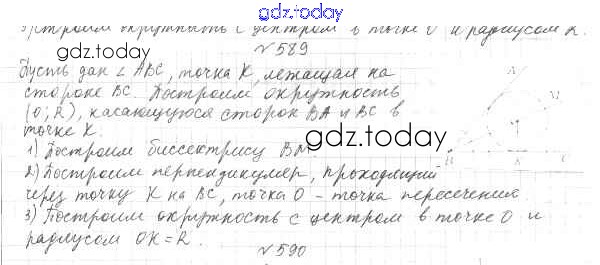 gdz.today
Построим окружность с центром в точке O и радиусом R.
№589
Пусть дан ∠ ABC, точка K, лежащая на
стороне BC. Построим окружность
(O; R), касающуюся сторон BA и BC в
точке K.
gdz.today
gdz.today
1) Построим биссектрису BM
2) Построим перпендикуляр, проходящий
через точку K на BC, точка O - точка пересечения.
3) Построим окружность с центром в точке O и
радиусом OK = R.
№590